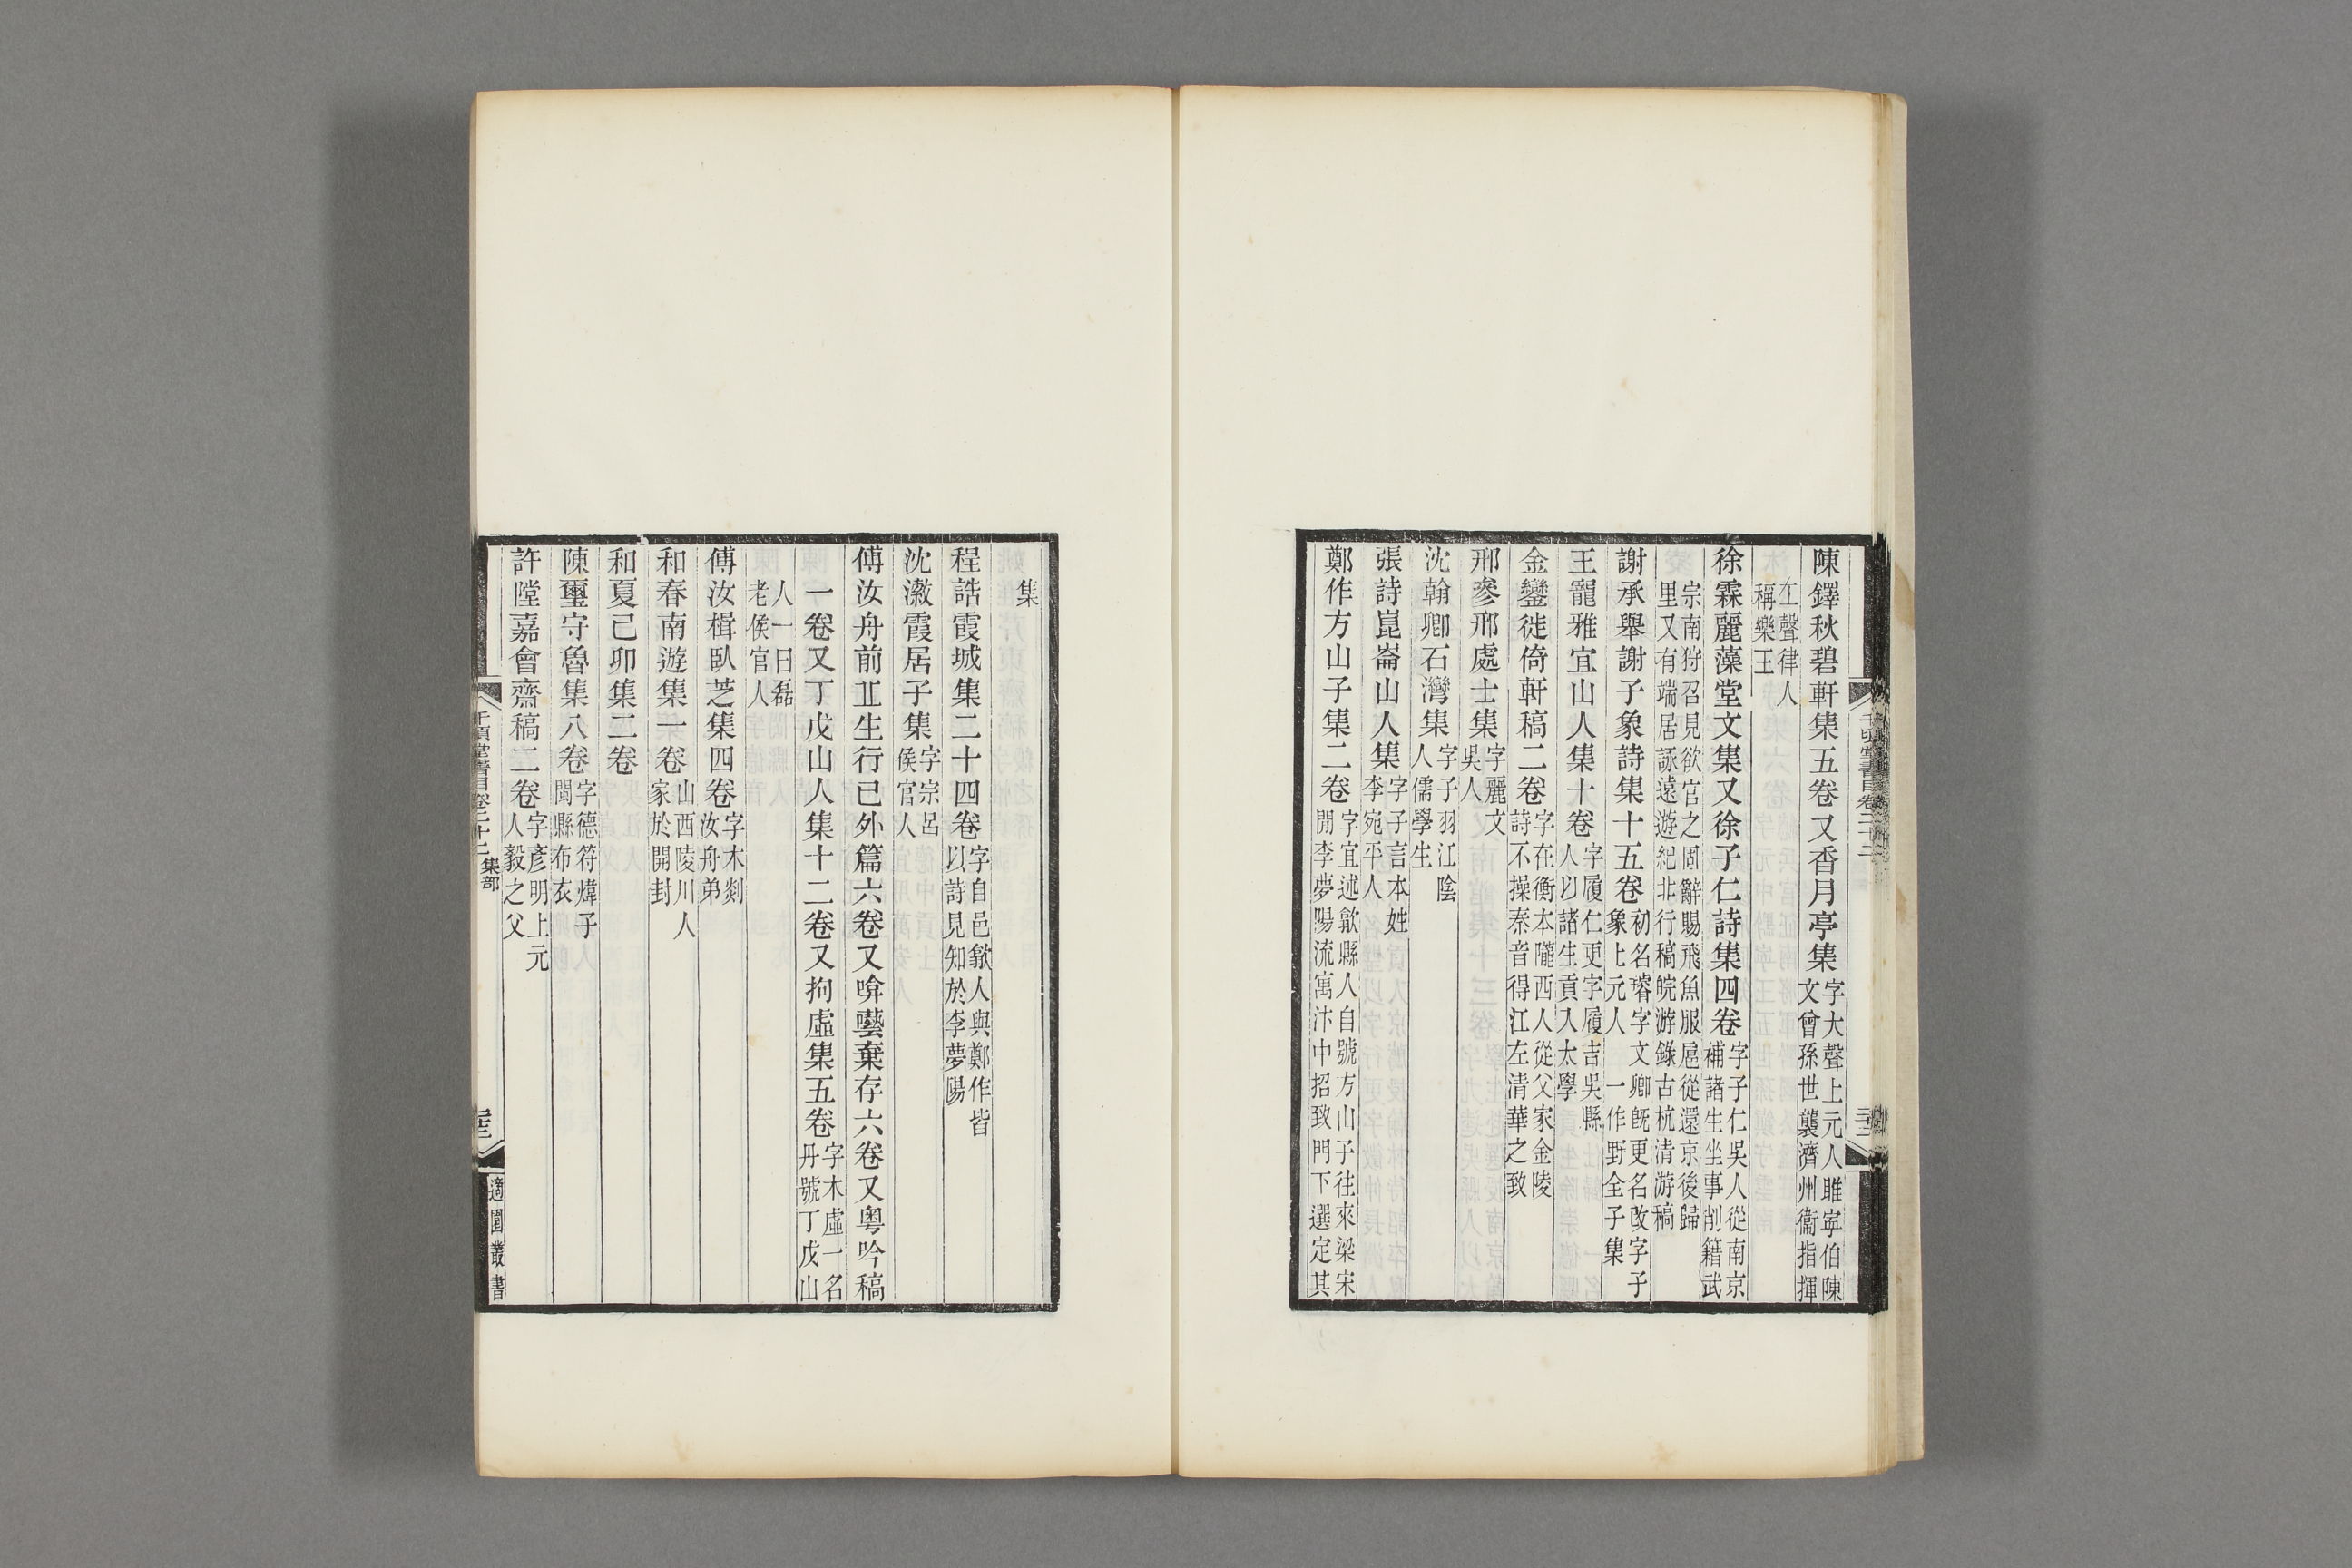 陳鐸秋碧軒集五卷又香月亭集字大聲上元人睢寧伯陳文曾孫世襲濟州衞指揮
工聲律人稱樂王
徐霖麗藻堂文集又徐子仁詩集四卷字子仁吳人從南京補諸生坐事削籍武
宗南狩召見欲官之固辭賜飛魚服扈從還京後歸里又有端居詠遠遊紀北行稿皖游錄古杭清游稿
謝承舉謝子象詩集十五卷初名璿字文卿旣更名改字子象上元人 一作野全子集
王寵雅宜山人集十卷字履仁更字履吉吳縣人以諸生貢入太學
金鑾徙倚軒稿二卷字在衡本隴西人從父家金陵詩不操秦音得江左清華之致
邢參邢處士集字麗文吳人
沈翰卿石灣集字子羽江陰人儒學生
張詩崑崙山人集字子言本姓李宛平人
鄭作方山子集二卷字宜述歙縣人自號方山子往來梁宋閒李夢陽流寓汴中招致門下選定其
集
程誥霞城集二十四卷字自邑歙人與鄭作皆以詩見知於李夢陽
沈瀓霞居子集字宗呂侯官人
傅汝舟前丘生行已外篇六卷又啽囈棄存六卷又粤吟稿
一卷又丁戊山人集十二卷又拘虛集五卷字木虛一名丹號丁戊山
人一曰磊老侯官人
傅汝楫臥芝集四卷字木剡汝舟弟
和春南遊集一卷山西陵川人家於開封
和夏己卯集二卷
陳璽守魯集八卷字德符煒子閩縣布衣
許隚嘉會齋稿二卷字彥明上元人毅之父
千頃堂書目卷二十二 集部
適園叢書